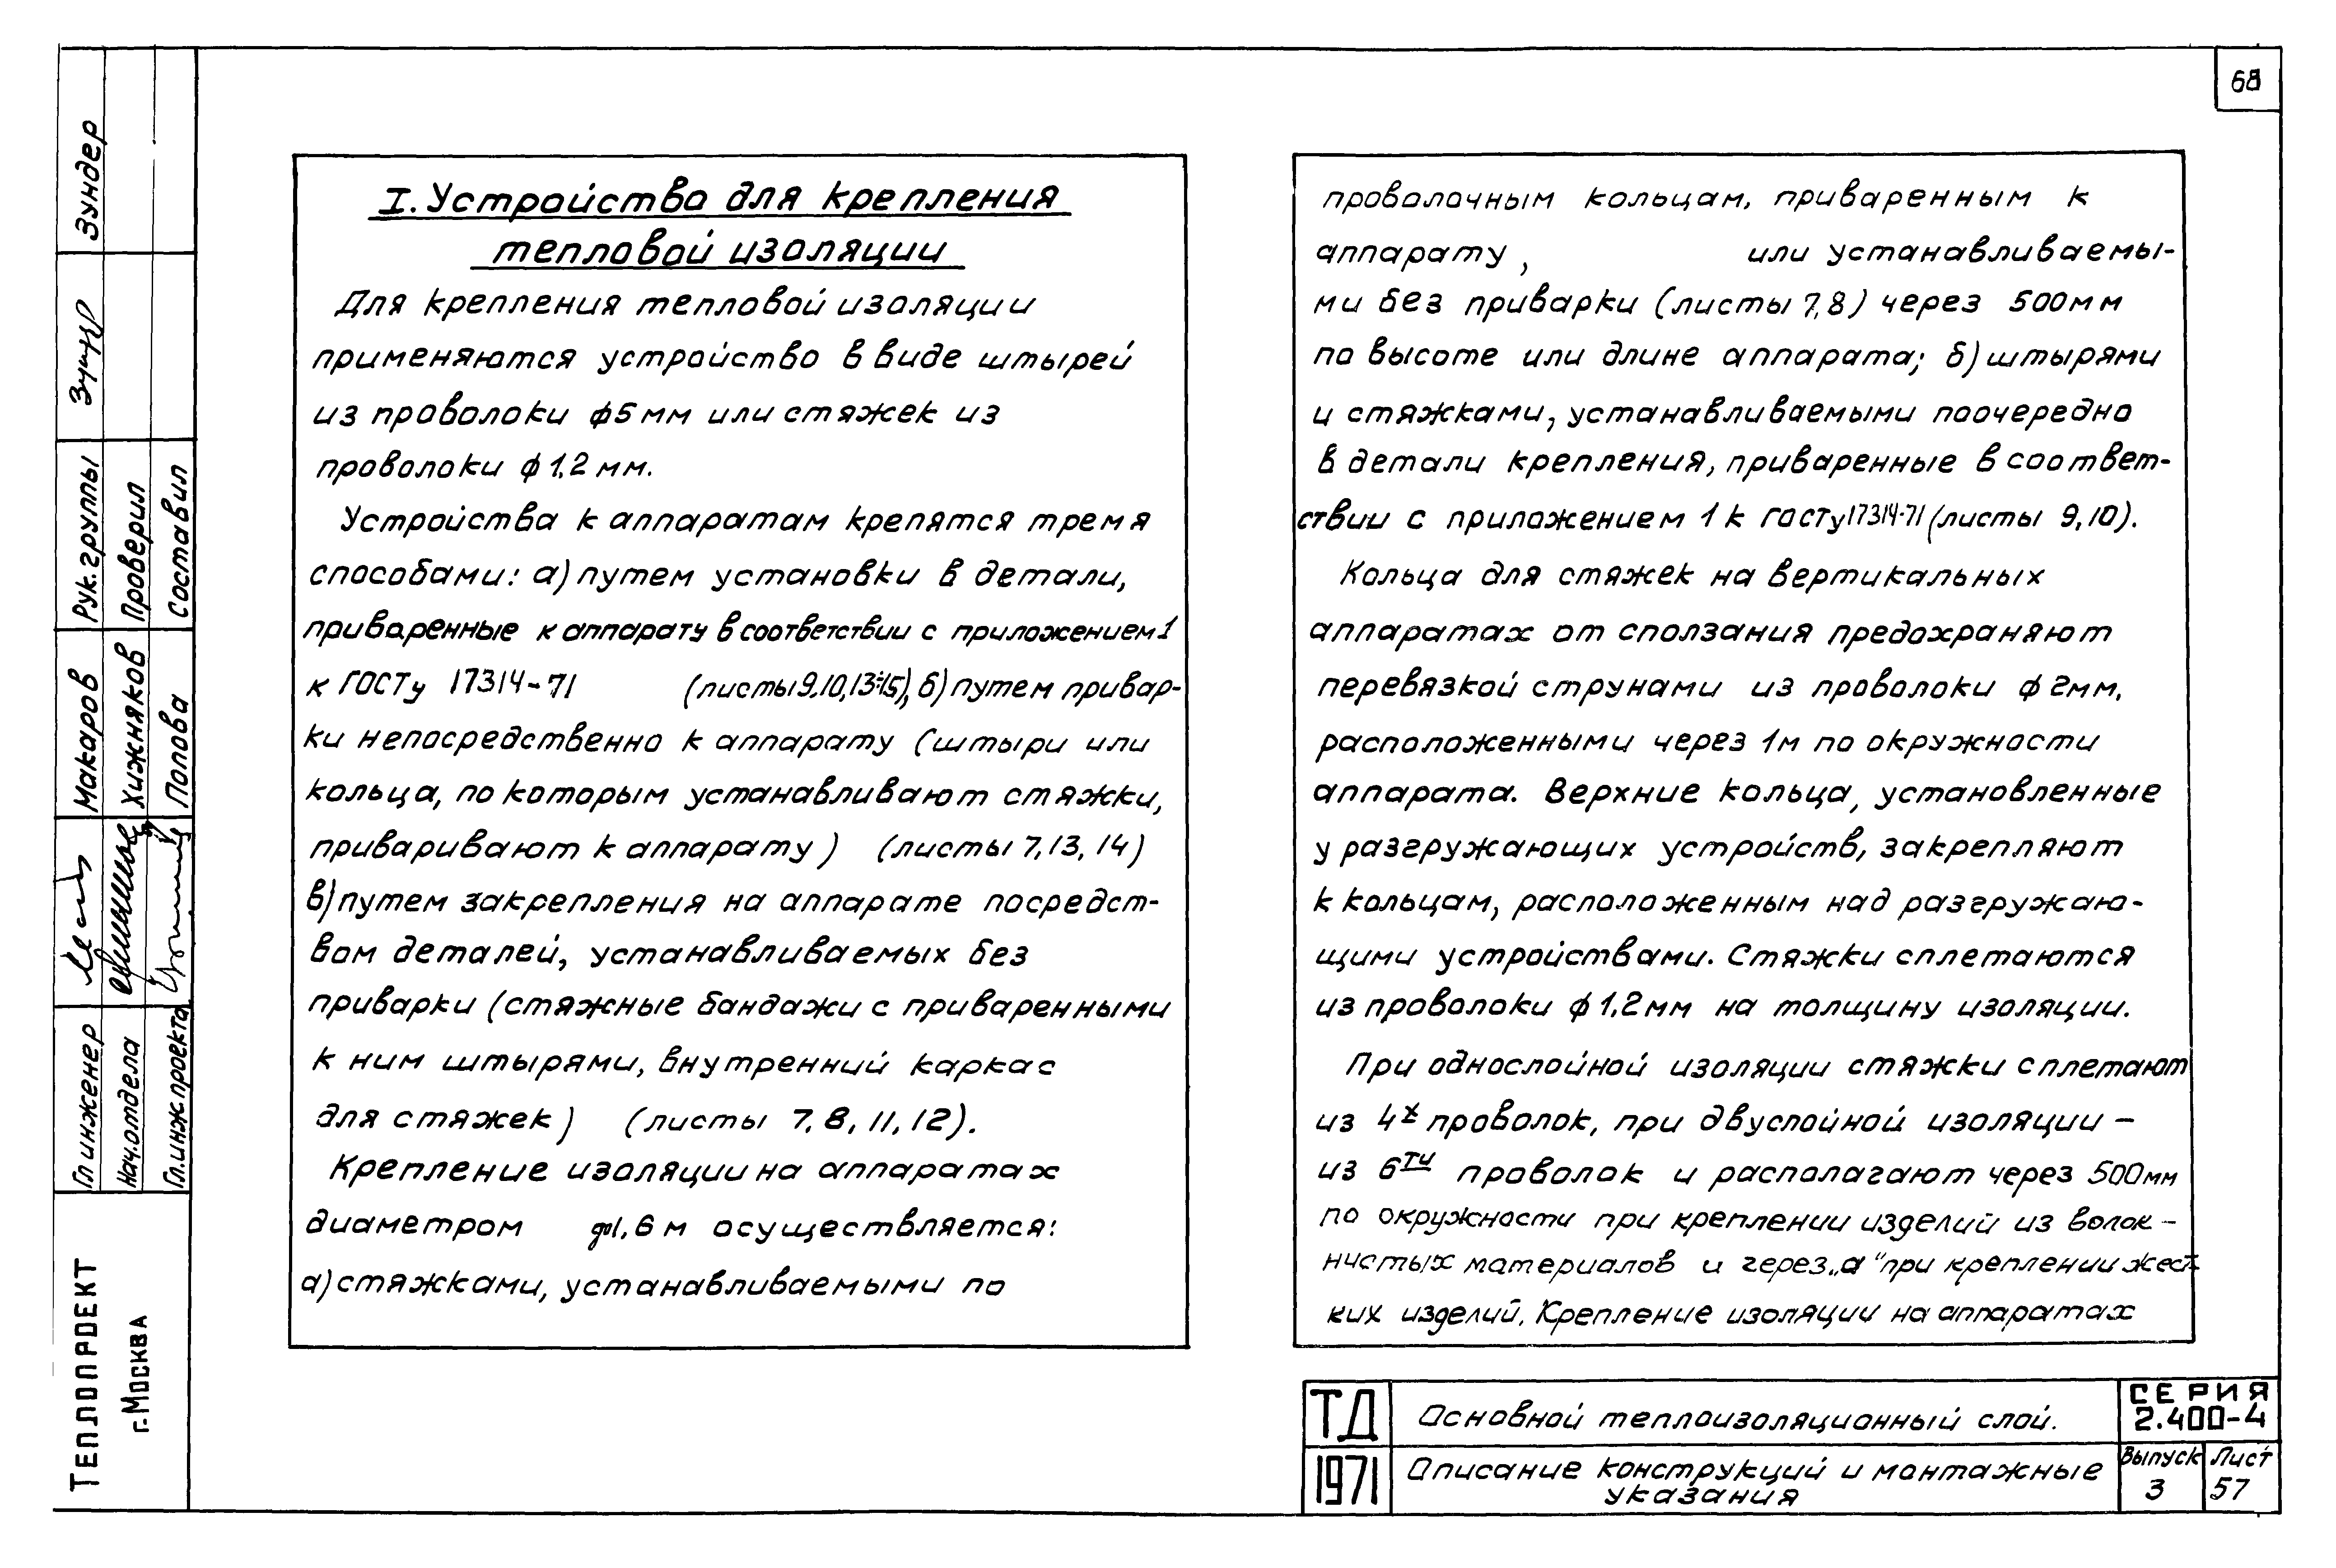 68
I. Устройство для крепления
тепловой изоляции
Для крепления тепловой изоляции
применяются устройство в виде штырей
из проволоки ф5мм или стяжек из
проволоки ф1,2мм.
Устройства к аппаратам крепятся тремя
способами: а) путем установки в детали,
приваренные к аппарату в соответствии с приложением 1
к ГОСТу 17314-71 (листы 9,10,13÷15), б) путем привар-
ки непосредственно к аппарату (штыри или
кольца, по которым устанавливают стяжки,
приваривают к аппарату) (листы 7,13,14)
в) путем закрепления на аппарате посредст-
вом деталей, устанавливаемых без
приварки (стяжные бандажи с приваренными
к ним штырями, внутренний каркас
для стяжек) (листы 7,8,11,12).
Крепление изоляции на аппаратах
диаметром до1,6м осуществляется:
а) стяжками, устанавливаемыми по
проволочным кольцам, приваренным к
аппарату, или устанавливаемы-
ми без приварки (листы 7,8) через 500мм
по высоте или длине аппарата; б) штырями
и стяжками, устанавливаемыми поочередно
в детали крепления, приваренные в соответ-
ствии с приложением 1 к госту 17314-71 (листы 9,10).
Кольца для стяжек на вертикальных
аппаратах от сползания предохраняют
перевязкой струнами из проволоки ф2мм,
расположенными через 1м по окружности
аппарата. Верхние кольца, установленные
у разгружающих устройств, закрепляют
к кольцам, расположенным над разгружаю-
щими устройствами. Стяжки сплетаются
из проволоки ф1,2мм на толщину изоляции.
При однослойной изоляции стяжки сплетают
из 4х проволок, при двуслойной изоляции -
из 6ти проволок и располагают через 500мм
по окружности при креплении изделий из волок-
нистых материалов и через „а" при креплении жест-
ких изделий. Крепление изоляции на аппаратах
ТД
1971
Основной теплоизоляционный слой.
Описание конструкций и монтажные
указания
СЕРИЯ
2.400-4
Выпуск
3
Лист
57
Зундер
Рук. группы
Проверил
Составил
Макаров
Хижняков
Попова
Гл инженер
Нач.отдела
Гл.инж проекта
ТЕПЛОПРОЕКТ
г.МОСКВА